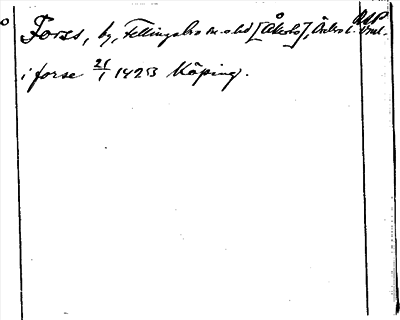 Forss, by, Fellingsbro sn o hd [Åkerbo], Örebro l.
i forse 21/1 1423 Köping.